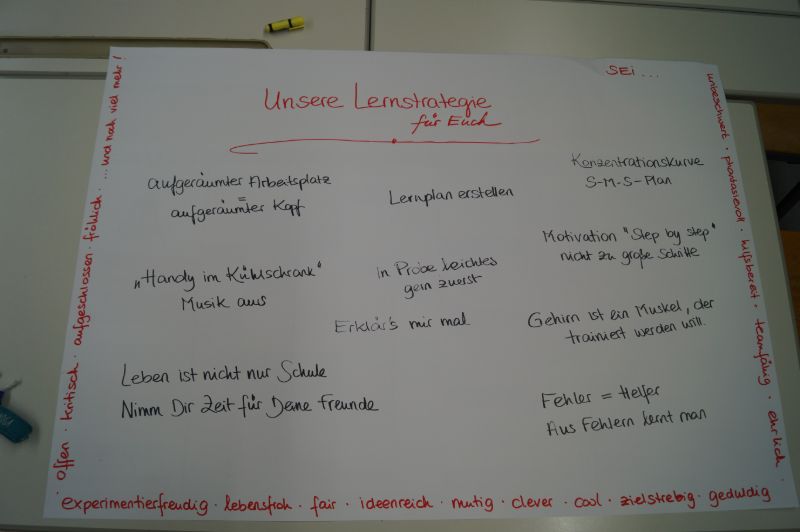 SEi ...
Unsere Lernstrategie
für Euch
aufgeräumter Arbeitsplatz
=
aufgeräumter Kopf
Lernplan erstellen
Konzentrationskurve
S-M-S-Plan
„Handy im Kühlschrank"
Musik aus
in Probe leichtes
gern zuerst
Motivation "Step by step"
nicht zu große Schritte
Erklär's mir mal
Gehirn ist ein Muskel, der
trainiert werden will.
Leben ist nicht nur Schule
Nimm Dir Zeit für Deine Freunde
Fehler = Helfer
Aus Fehlern lernt man
unbeschwert · phantasievoll · hilfsbereit · teamfähig · ehrlich ·
experimentierfreudig · lebensfroh · fair · ideenreich · mutig · clever · cool · zielstrebig · geduldig
· offen · kritisch · aufgeschlossen · fröhlich · ... und noch viel mehr!